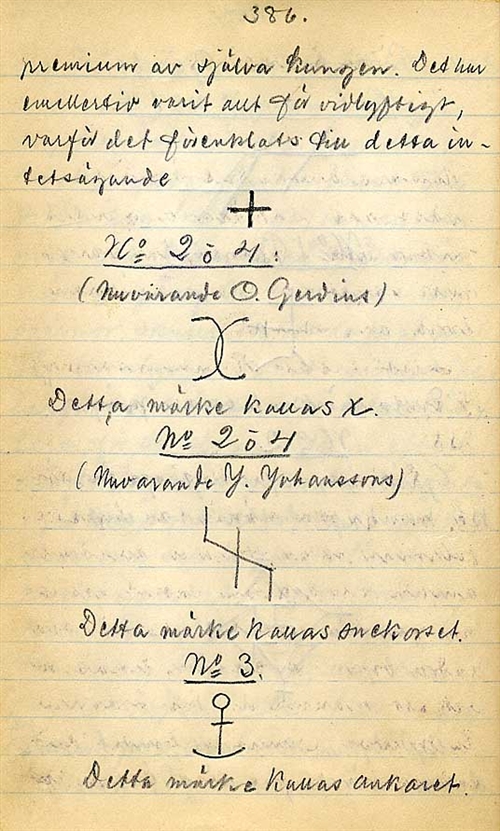 386.
premium av själva kungen. Det har
emellertid varit allt för vidlyftigt,
varför det förenklats till detta in-
tetsägande
No 2 ō 4.
(Nuvarande O. Gerdins)
Detta märke kallas X.
No 2 ō 4
(Nuvarande Y. Yohanssons)
Detta märke kallas snekorset.
No 3.
Detta märke kallas ankaret.